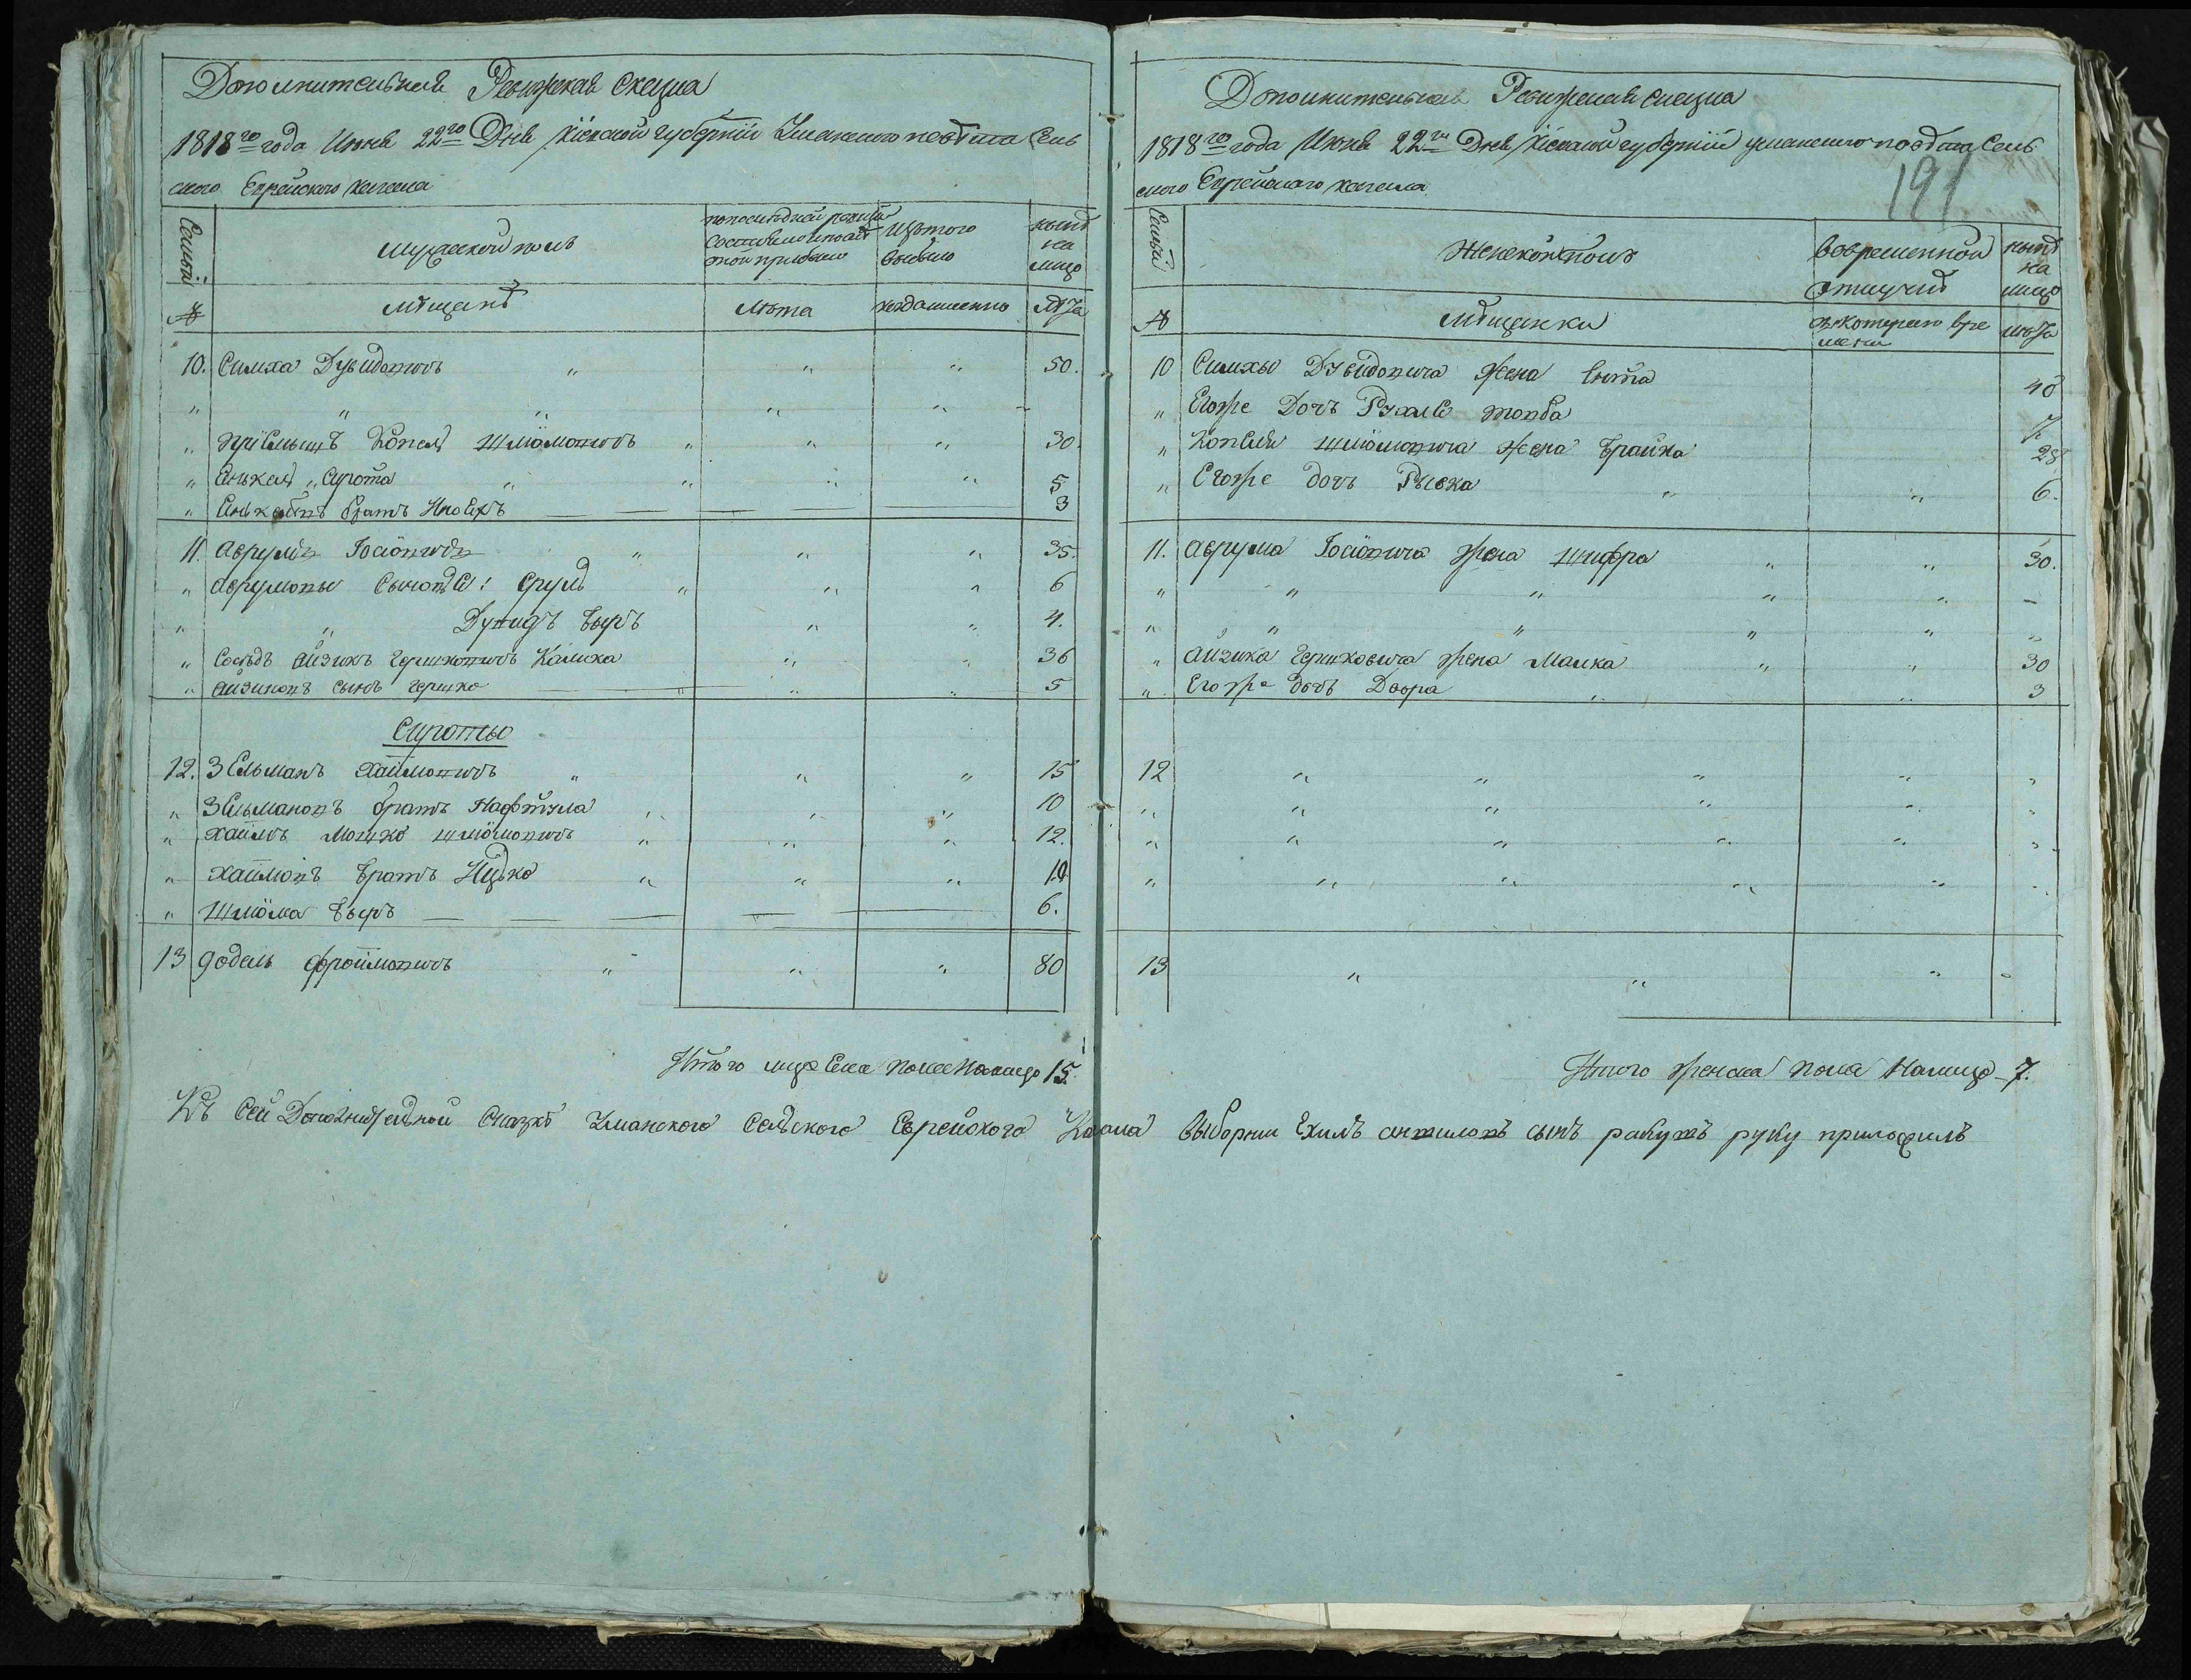 Дополнительная Ревижская скаска
1818го года Июня 22го Дня Кіевской губерніи Уманского повѣта Сель
ского Еврейского кагала
Семьи
Мужеской полъ
Изтого выбыло
нынѣ на лицо
№
мѣщанѣ
Лѣта
когда именно
Лѣта
10. Симха Дувидовичъ " " " 50.
" " " " " -
" Пріемышъ Копель Шліомовичъ " " " 30.
" Сирота " " " " 5
" братъ 3
11. Аврумъ Іосіовичъ " " " 35.
" Аврумовы Сыновья: Срулъ " " " 6
" " Дувидъ Беръ " " 4.
" Сосѣдъ Айзикъ Гершковичъ Калика " " 36
" Айзиковъ сынъ Гершко " " " 5
Сироты
12. Зельманъ Хаймовичъ " " " 15
" Зельмановъ братъ Нафтула " " " 10
" Хаимъ Мошко Шліомовичъ " " " 12.
" Хаимовъ братъ Ицько " " " 10
" Шліома Беръ 6.
13 Годель Фроимовичъ " " " 80
Итого мужеска пола налицо 15.
Дополнительная Ревижская скаска
1818го года Июня 22го Дня Кіевской губерніи уманского повѣта Сель
ского Еврейского кагала
191
Семьи
Женской полъ
Вовременной отлучкѣ
нынѣ на лицо
№
Мѣщанки
съ котораго времени
лѣта
10 Симхы Дувидовича жена 40
" Егоже дочъ Рухля 7
" Копеля Шліомовича жена Брайна 28
" Егоже дочъ Рыска " " 6.
11. Аврума Іосіовича жена Шифра " " 30.
" " " " " -
" " " " " "
" Айзика Гершковича жена Малка " " 30
" Егоже дочъ Двора " " 3
12 " " " " "
" " " " " "
" " " " " "
" " " " " "
13 " " " "
Итого женска пола Налицо 7.
Къ Сей Дополнительной Сказкѣ Уманского Сельского Еврейского Кагала выборни Ехилъ сынъ руку приложилъ